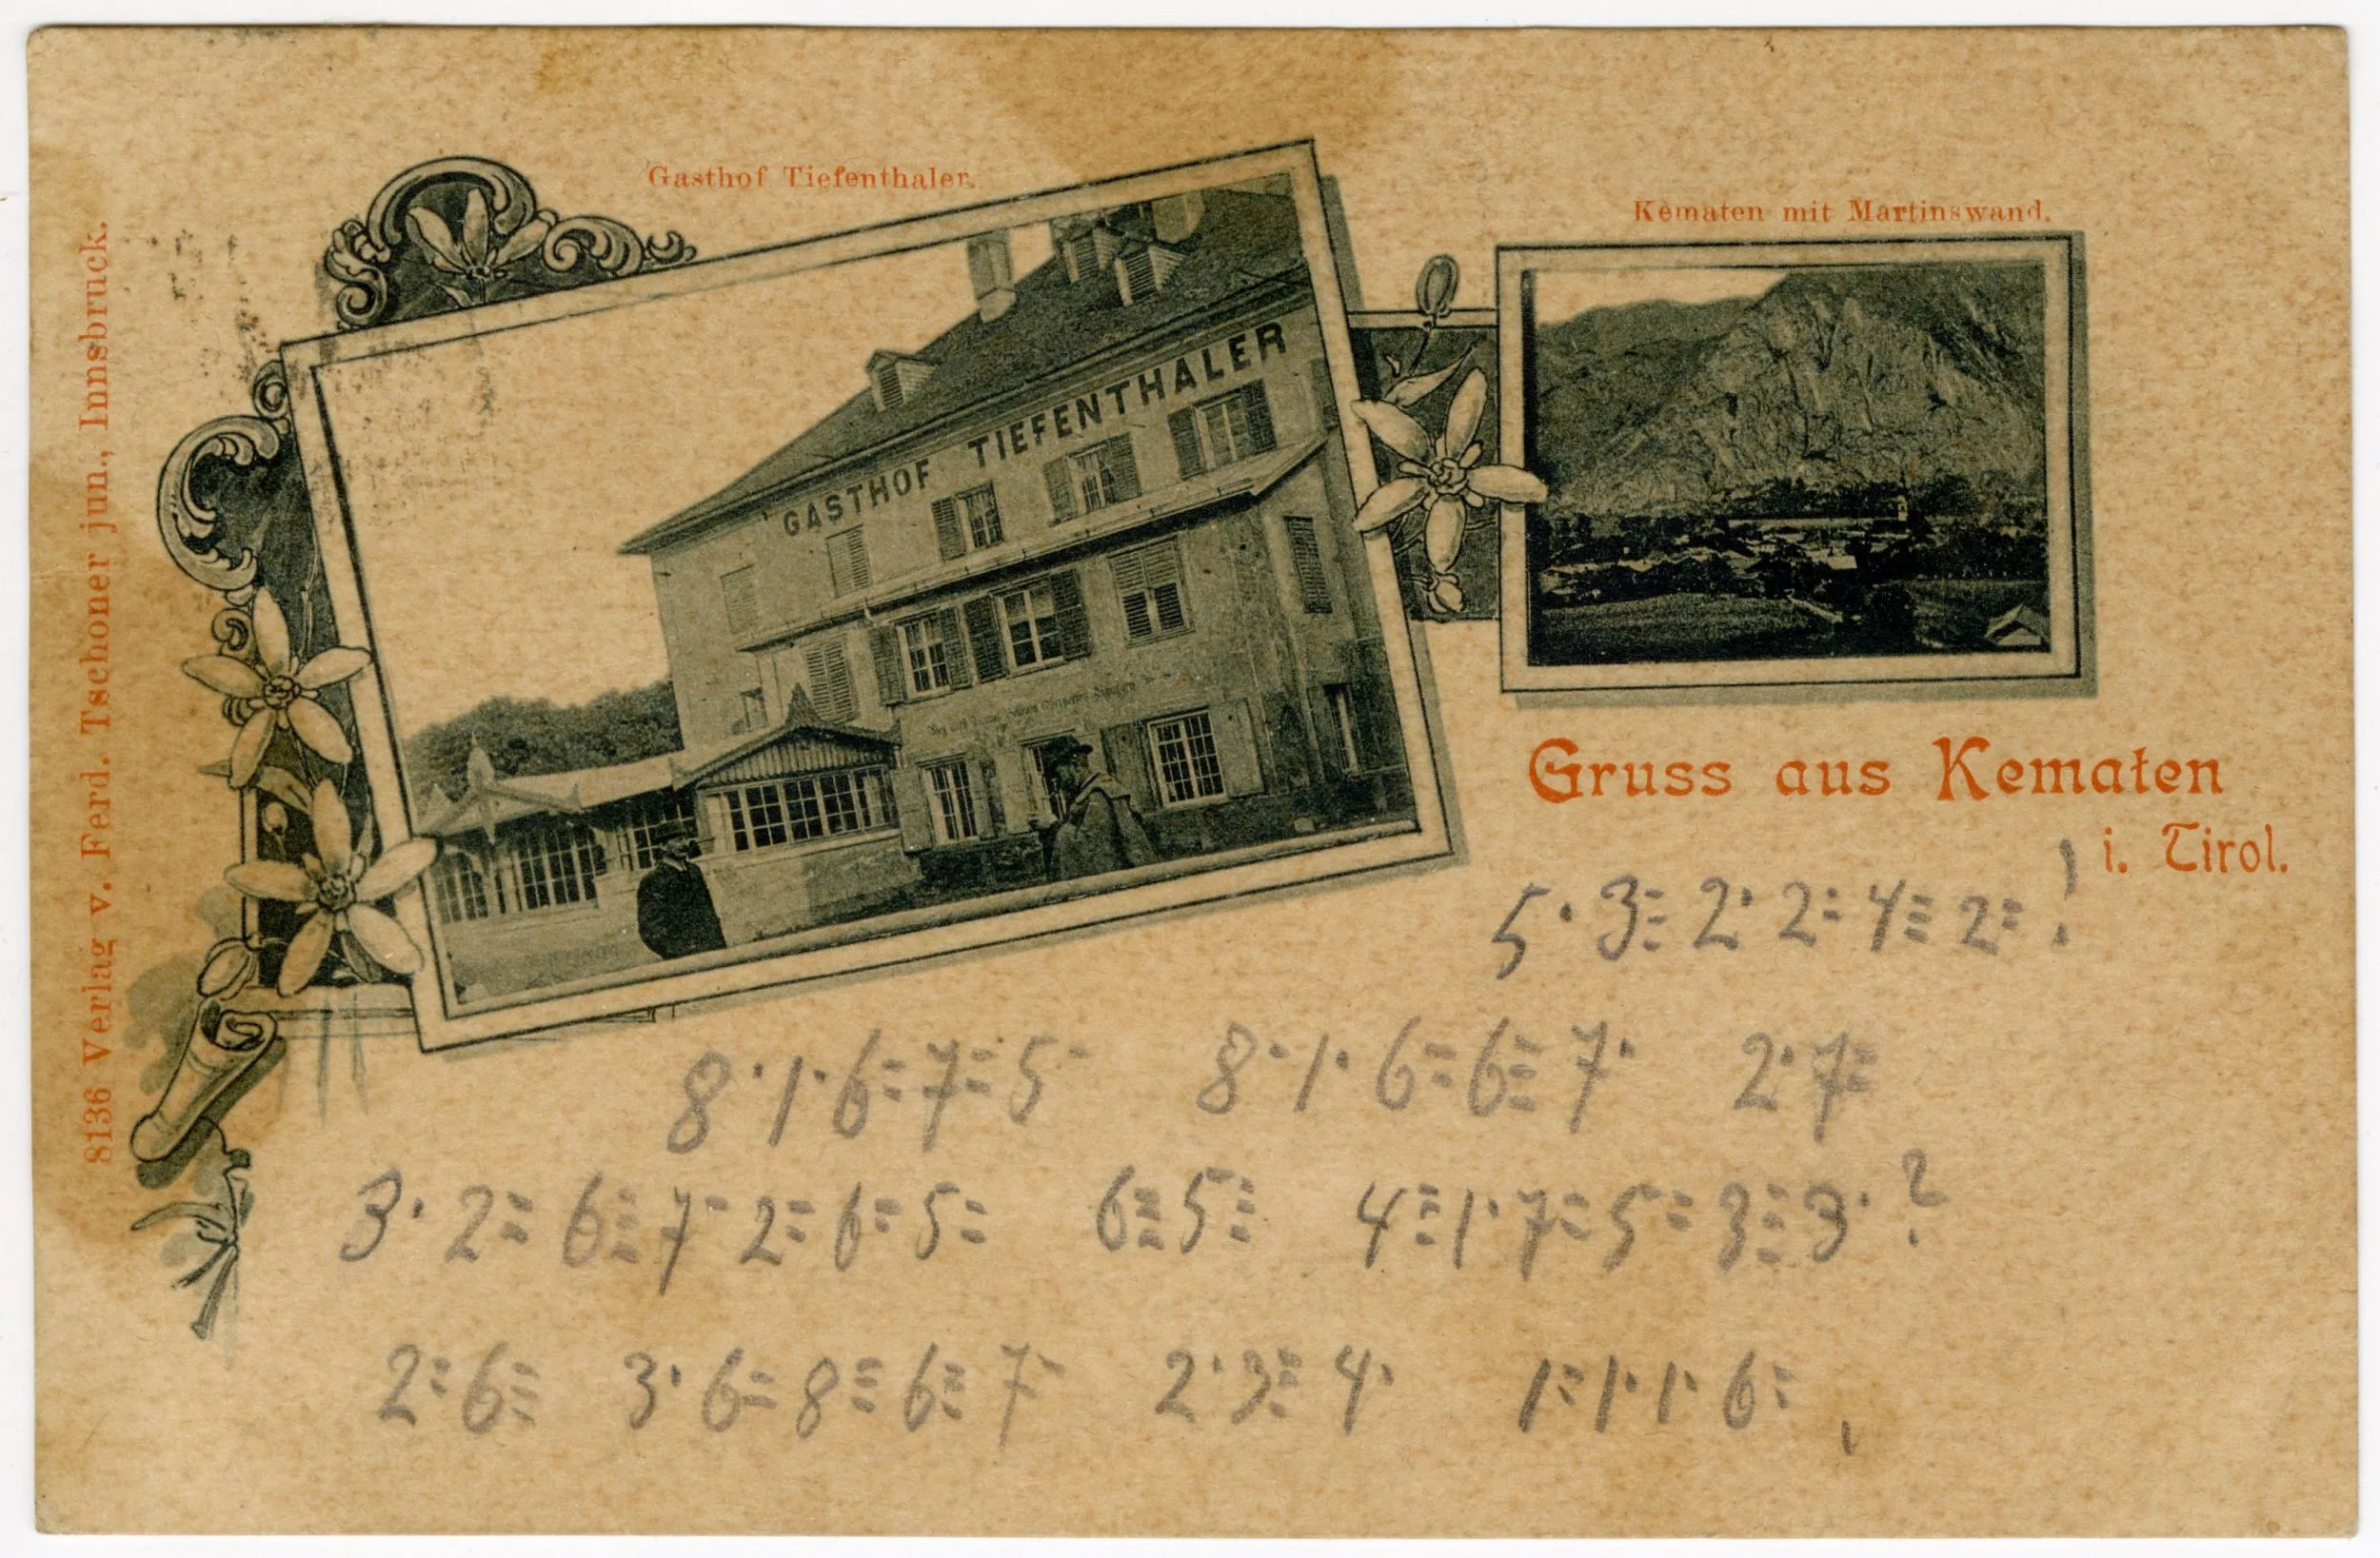 Gasthof Tiefenthaler.
Kematen mit Martinswand.
GASTHOF TIEFENTHALER
8136 Verlag v. Ferd. Tschoner jun., Innsbruck.
Gruss aus Kematen
i. Tirol.
5· 3⫶ 2· 2: 4⫶ 2: !
8· 1· 6: 7: 5· 8· 1· 6: 6⫶ 7· 2· 7:
3· 2: 6⫶ 7· 2: 6: 5: 6⫶ 5⫶ 4⫶ 1· 7: 5: 3⫶ 3· ?
2: 6⫶ 3· 6: 8⫶ 6⫶ 7· 2· 3⫶ 4· 1: 1· 1· 6: ,